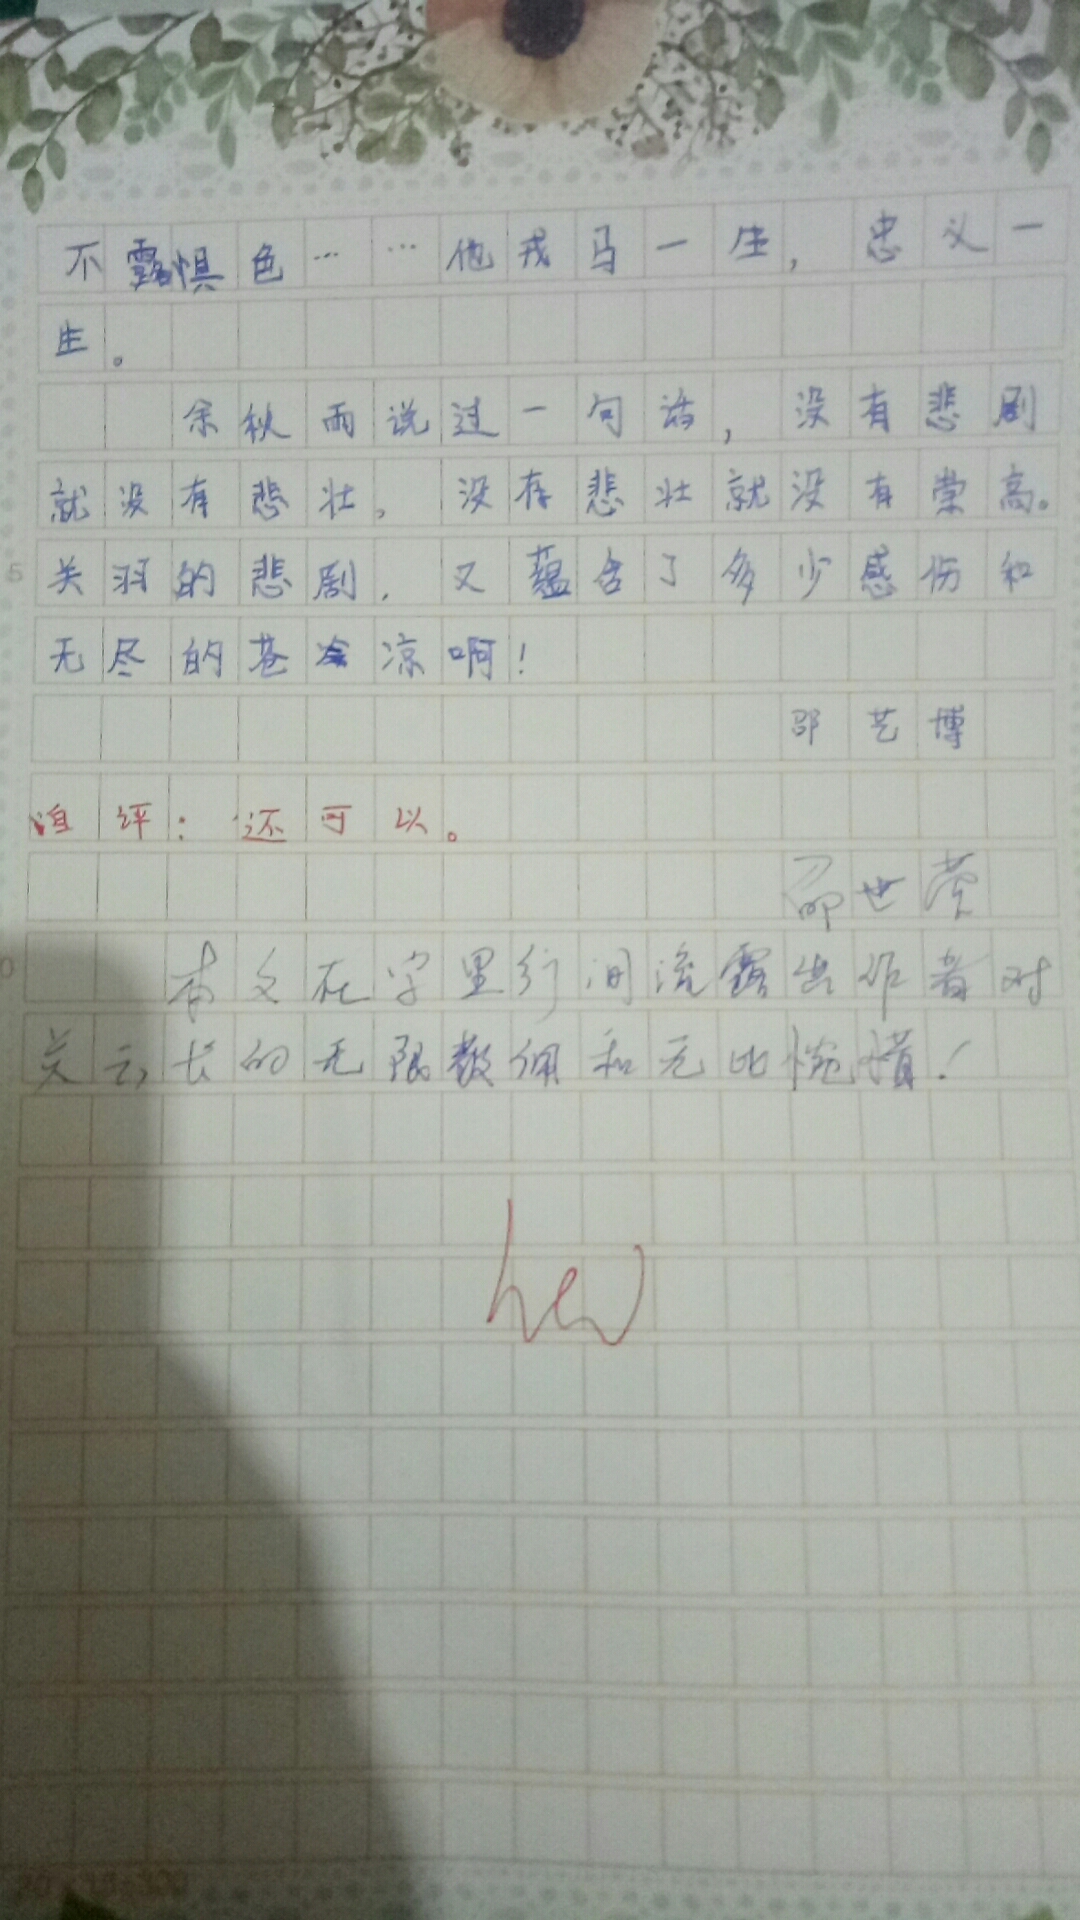 不露惧色……他戎马一生，忠义一
生。
余秋雨说过一句话，没有悲剧
就没有悲壮，没有悲壮就没有崇高。
关羽的悲剧，又蕴含了多少感伤和
无尽的苍凉啊！
邵艺博
自评：还可以。
邵世
本文在字里行间流露出作者对
关云长的无限敬佩和无比惋惜！
5